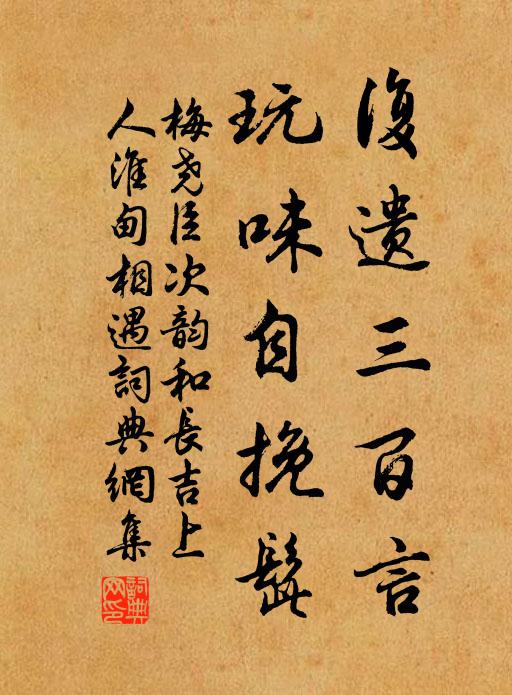 復遺三百言
玩味自挽髭
梅尧臣次韵和長吉上
人淮甸相遇詞典網集
詞典网印